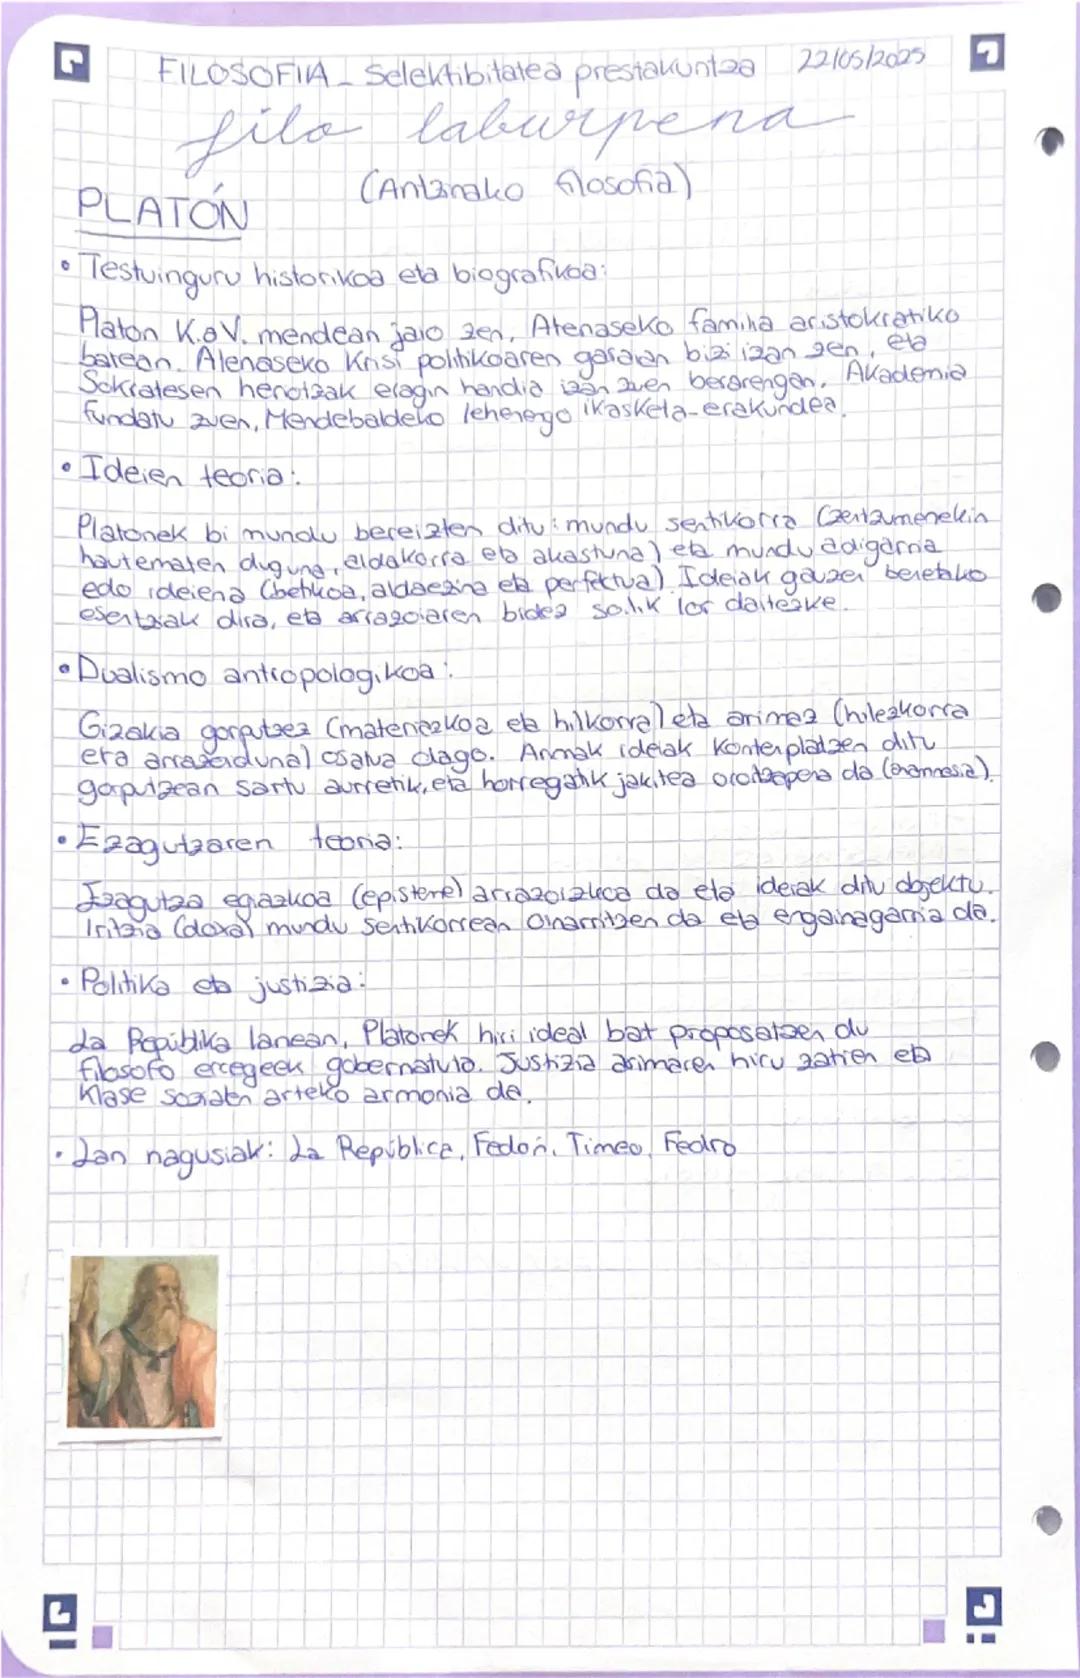 FILOSOFIA - Selektibitatea prestakuntza 22/05/2025
filo laburpena
(Antzinako filosofia)
PLATÓN
• Testuinguru historikoa eta biografikoa:
Platon K.a V. mendean jaio zen, Atenaseko familia aristokratiko
batean. Atenaseko krisi politikoaren garaian bizi izan zen, eta
Sokratesen heriotzak eragin handia izan zuen berarengan. Akademia
fundatu zuen, Mendebaldeko lehenengo ikasketa-erakundea.
• Ideien teoria:
Platonek bi mundu bereizten ditu: mundu sentikorra (zentzumenekin
hautematen duguna, aldakorra eta akastuna) eta mundu adigarria
edo ideiena (betikoa, aldaezina eta perfektua). Ideiak gauzen benetako
esentziak dira, eta arrazoiaren bidez soilik lor daitezke.
• Dualismo antropologikoa:
Gizakia gorputzez (materiazkoa eta hilkorra) eta arimaz (hilezkorra
eta arrazoiduna) osatua dago. Arimak ideiak kontenplatzen ditu
gorputzean sartu aurretik, eta horregatik jakitea oroitzapena da (anamnesia).
• Ezagutzaren teoria:
Ezagutza egiazkoa (episteme) arrazoizkoa da eta ideiak ditu objektu.
Iritzia (doxa) mundu sentikorrean oinarritzen da eta engainagarria da.
• Politika eta justizia:
La República lanean, Platonek hiri ideal bat proposatzen du
filosofo erregeek gobernatuta. Justizia arimaren hiru zatien eta
klase sozialen arteko armonia da.
• Lan nagusiak: La República, Fedón, Timeo, Fedro